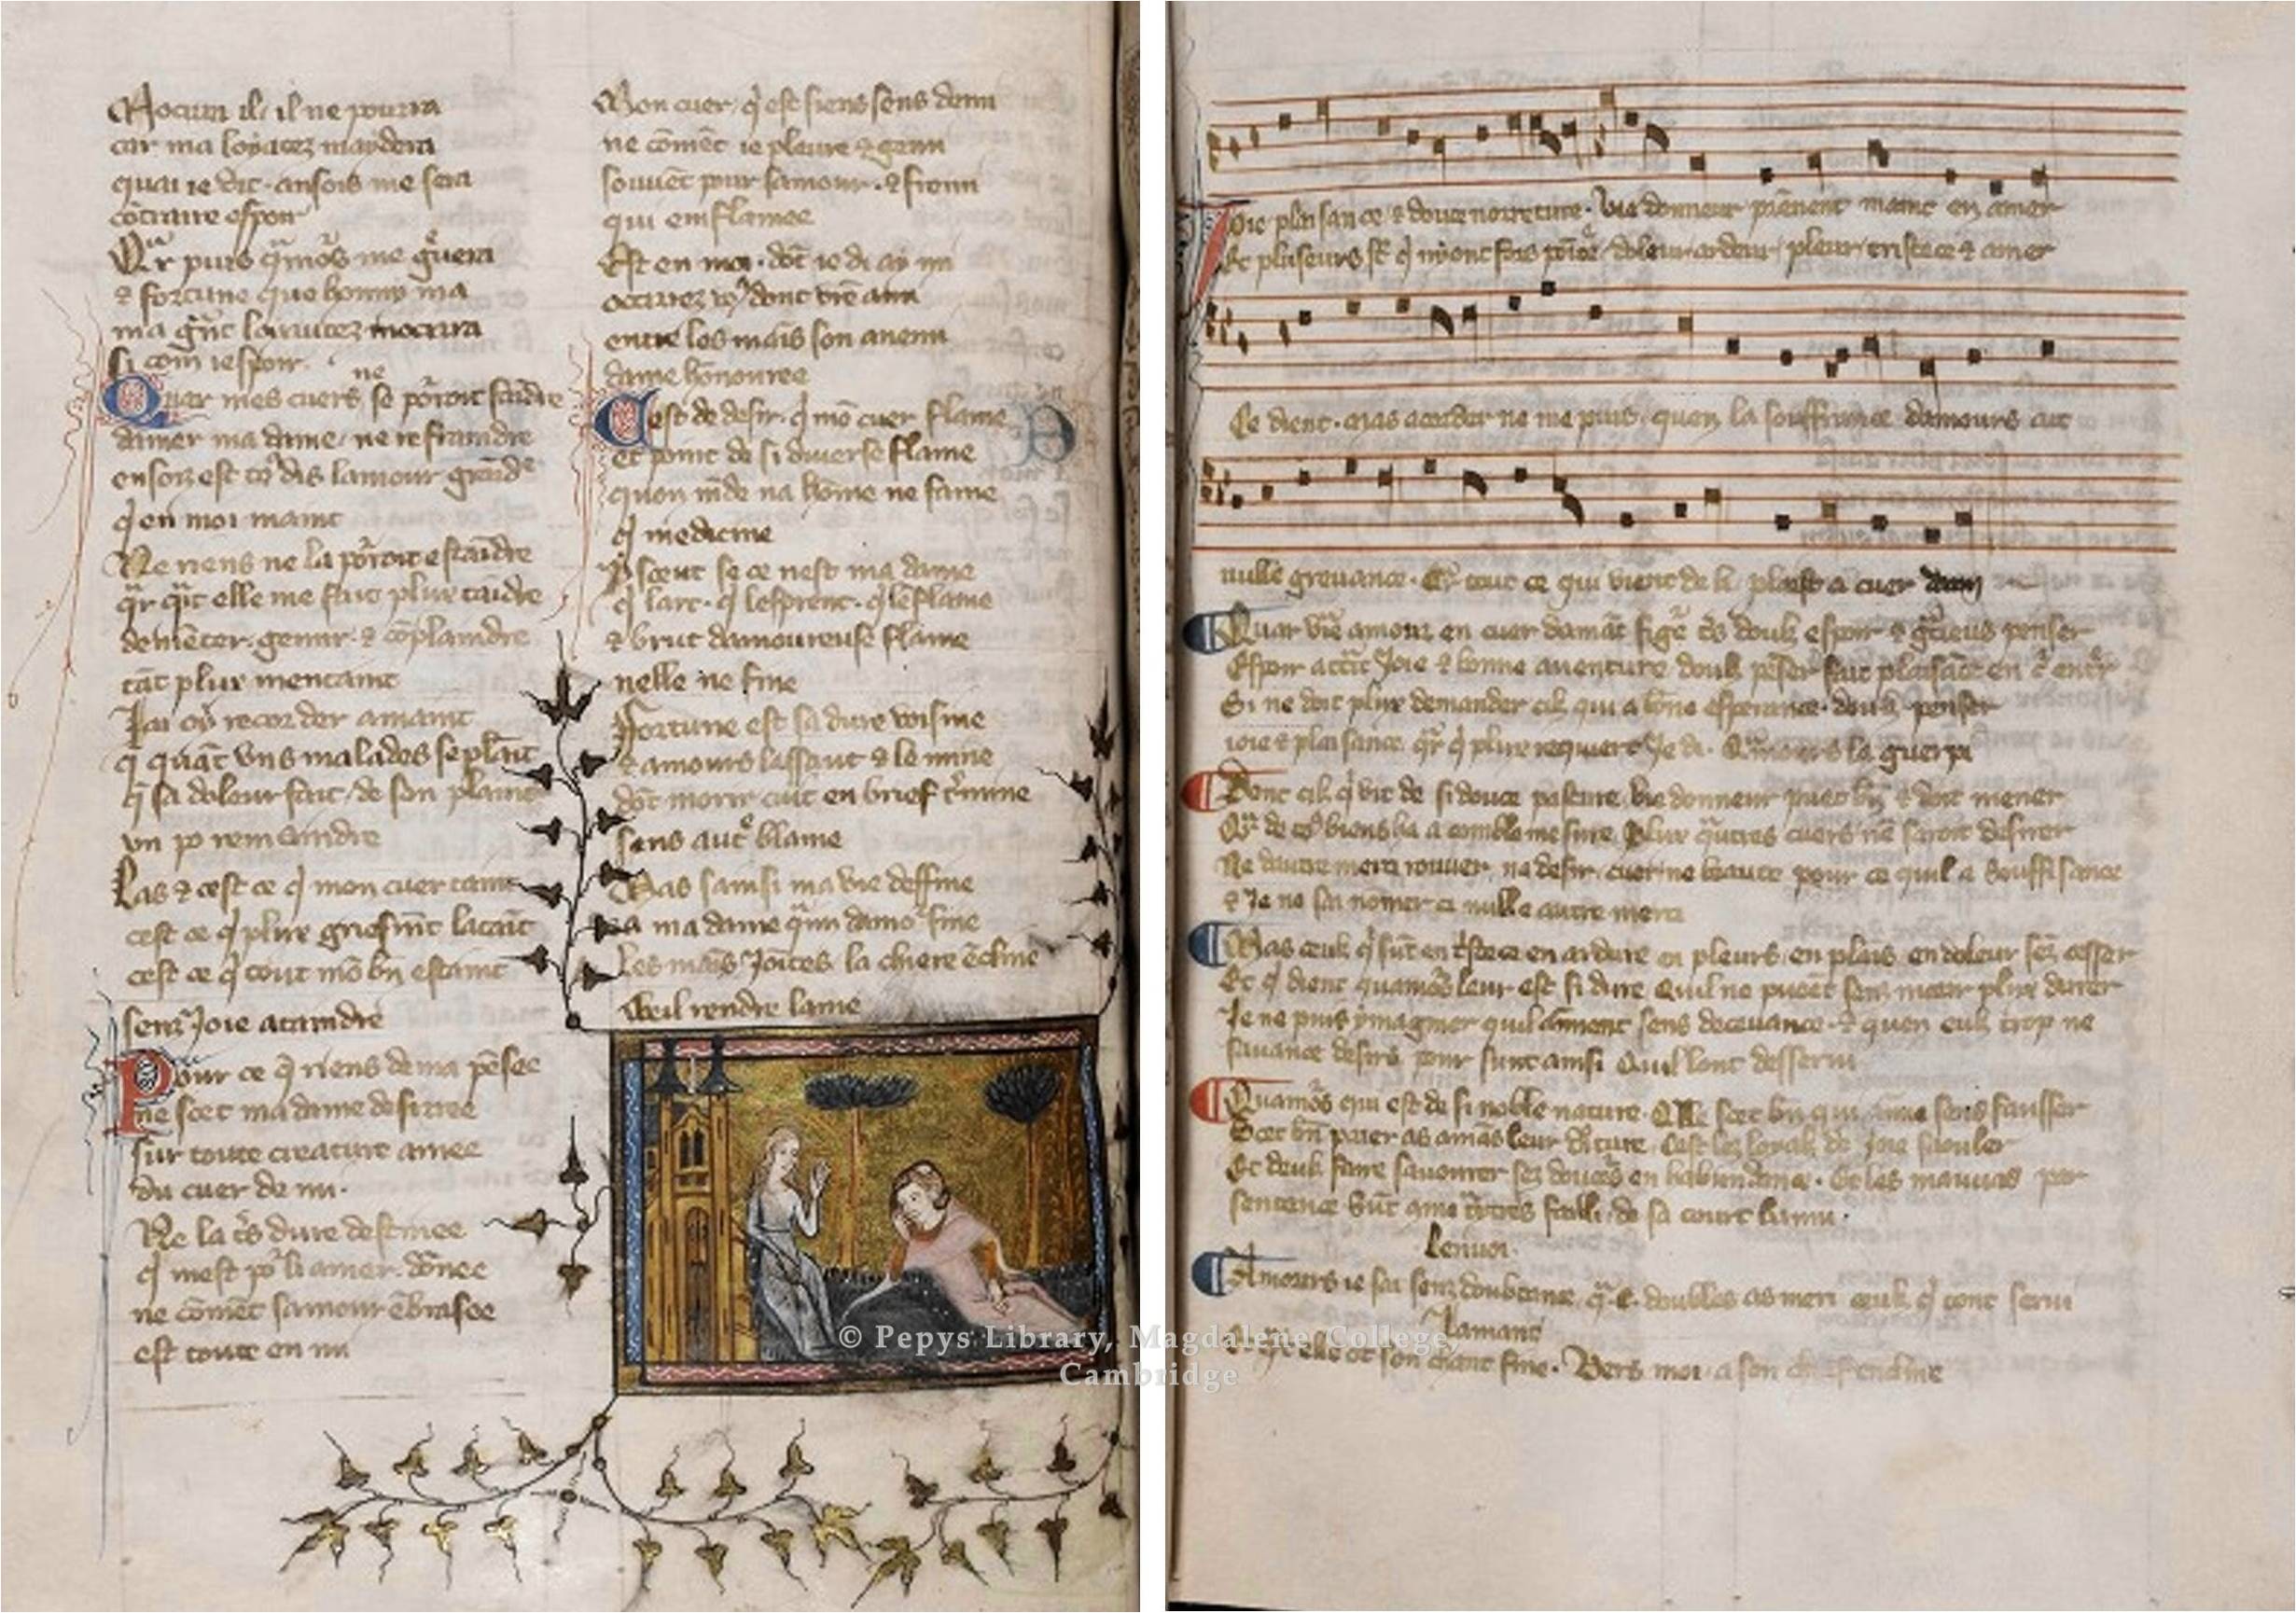 Mocirra il, il ne pourra
car ma loyatez maydera
quai ie dit. ansois me sera
cōtraire espoir
Qr puis q̄mos me guera
& fortune que honny ma
ma gn̄t loiautez mocirra
si com iespoir.
ne
Quar mes cuers se poroit faīdre
damer ma dame, ne refraindre
en son est to dis lamour
q̄ en moi maint
Ne riens ne la poroit estaīdre
qr qt elle me fait plus taīdre
demēter. gemir. & cōplaindre
tāt plus mentaint
Jai oy recorder amaint
q̄ quāt vns malades se plaīt
q̄ sa dolour fait, de son plaint
vn po remaindre
Las & cest ce q̄ mon cuer taint
cest ce q̄ plus griefmt lataīt
cest ce q̄ tout mō bn̄ estaint
senz Joie ataindre
Pour ce q̄ riens de ma pēsee
ne scet ma dame desirree
sur toute creature amee
du cuer de mi.
Ne la ts dure destinee
q̄ mest po li amer. dōnee
ne cōmēt samour ēbrasee
est toute en mi
Mon cuer, q̄ est siens sens demi
ne cōmēt ie pleure & gemi
souuēt pour samour. & fremi
qui enflamee
Est en moi. dōt ie di ay mi
occiez dont vrē ami
entre les mais son anemi
dame hōnouree
Cest de desir. q̄ mō cuer flame
et point de si diuerse flame
quon mde na hōme ne fame
q̄ medicine
P sceut se ce nest ma dame
q̄ lart. q̄ lesprent. q̄ lēflame
& bruit damoureuse flame
nelle ne fine
Fortune est sa dure voisine
& amours lassaut & le mine
dōt morir cuit en brief tmine
sans aut blame
Mas sainsi ma vie deffine
a ma dame q̄im damo fine
Les mais Joītes. la chiere ēcline
Weil rendre lame
Joie plaisance & douce norreture. Vie donneur prēnent maint en amer
Et pluseurs st q̄ nyont fors dolour ardour, plour, tristece & amer
Ce dient. mas acorder ne me puis. quen la souffrance damours ait
nulle greuance. Qr tout ce qui vient de li plaist a cuer dami
Quar vrē amour en cuer damāt figē ts doulz espoir & gtieus penser
Espoir attrait Joie & bonne auenture doulz pēser fait plaisāce en entr
Si ne doit plus demander cilz qui a bōne esperance. doulz penser
ioie & plaisance. qr q̄ plus requiert Je di. Qamours la guerpi
Donc cilz q̄ vit de si douce pasture, vie donneur puet bn̄ & doit mener
Qr de biens ha a comble mesure. Plus qautres cuers nē saroit desirer
Ne dautre merci rouuer, na desir, cuer ne beaute pour ce quil a Souffisance
& Je ne sai nōmer ci nulle autre merci
Mas ceulz q̄ sūt en tstece en ardure en pleurs en plais en dolour senz cesser
Et q̄ dient quamos leur est si dure Quil ne pueēt senz morir plus durer
Je ne puis ymaginer quil aīment sens deceuance. & quen eulz trop ne
sauance desirs pour sunt ainsi Quil lont desserui
Quamos qui est de si noble nature. Qlle scet bn̄ qui aime sens fausser
Scet bn̄ paier as amās leur droiture Cest les loyalz de Joie saouler
Et deulz faire sauourer ses doucrs en habundance. Et les mauuais par
sentence Sūt com traitres failli de sa court banni.
Lenuoi.
Amours ie sai senz doubtance, q̄ C. doubles as meri ceulz q̄ tont serui
Lamant
elle ot son chant fine. Vers moi a son chief encline
© Pepys Library, Magdalene College,
Cambridge